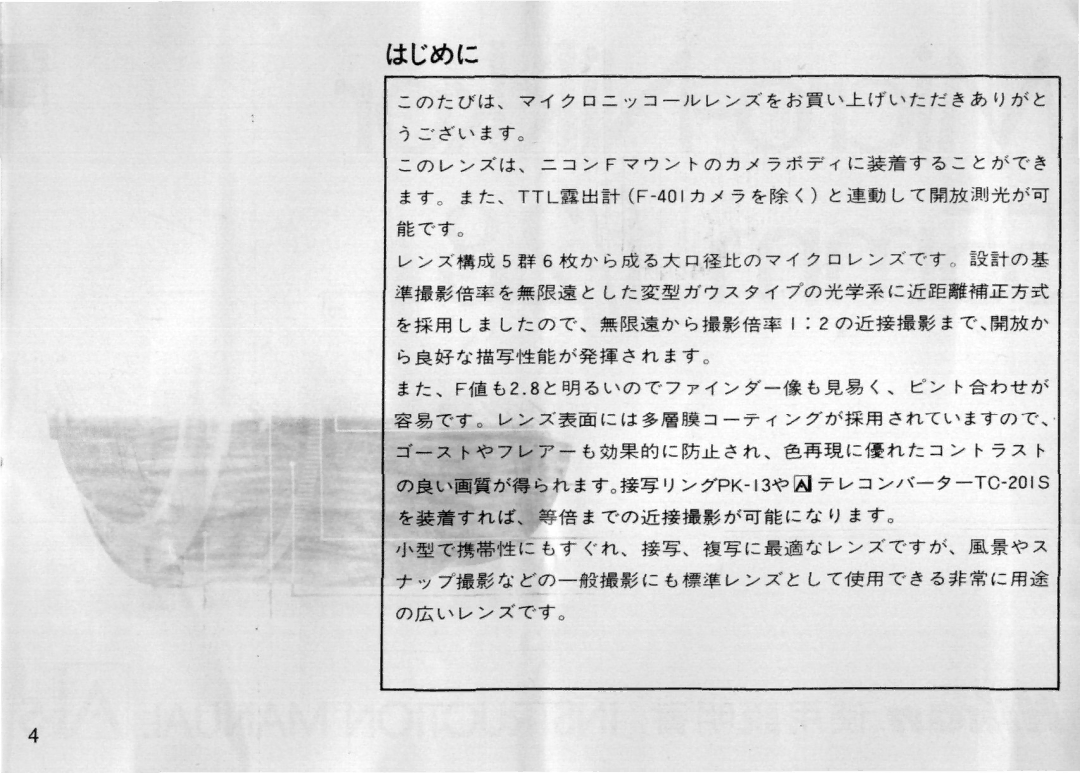 はじめに
このたびは、マイクロニッコールレンズをお買い上げいただきありがと
うございます。
このレンズは、ニコンFマウントのカメラボディに装着することができ
ます。また、TTL露出計（F-401カメラを除く）と連動して開放測光が可
能です。
レンズ構成5群6枚から成る大口径比のマイクロレンズです。設計の基
準撮影倍率を無限遠とした変型ガウスタイプの光学系に近距離補正方式
を採用しましたので、無限遠から撮影倍率1：2の近接撮影まで、開放か
ら良好な描写性能が発揮されます。
また、F値も2.8と明るいのでファインダー像も見易く、ピント合わせが
容易です。レンズ表面には多層膜コーティングが採用されていますので、
ゴーストやフレアーも効果的に防止され、色再現に優れたコントラスト
の良い画質が得られます。接写リングPK-13やAiテレコンバーターTC-201S
を装着すれば、等倍までの近接撮影が可能になります。
小型で携帯性にもすぐれ、接写、複写に最適なレンズですが、風景やス
ナップ撮影などの一般撮影にも標準レンズとして使用できる非常に用途
の広いレンズです。
4